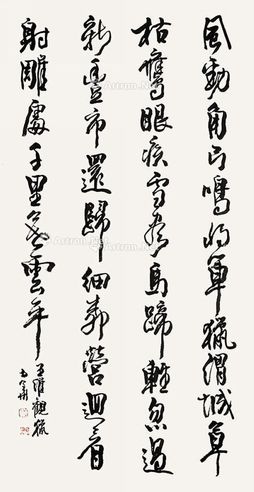 風勁角弓鳴将軍獵渭城草
枯鷹眼疾雪盡馬蹄輕忽過
新豐市還歸細柳營迴看
射雕處千里暮雲平
王維觀獵